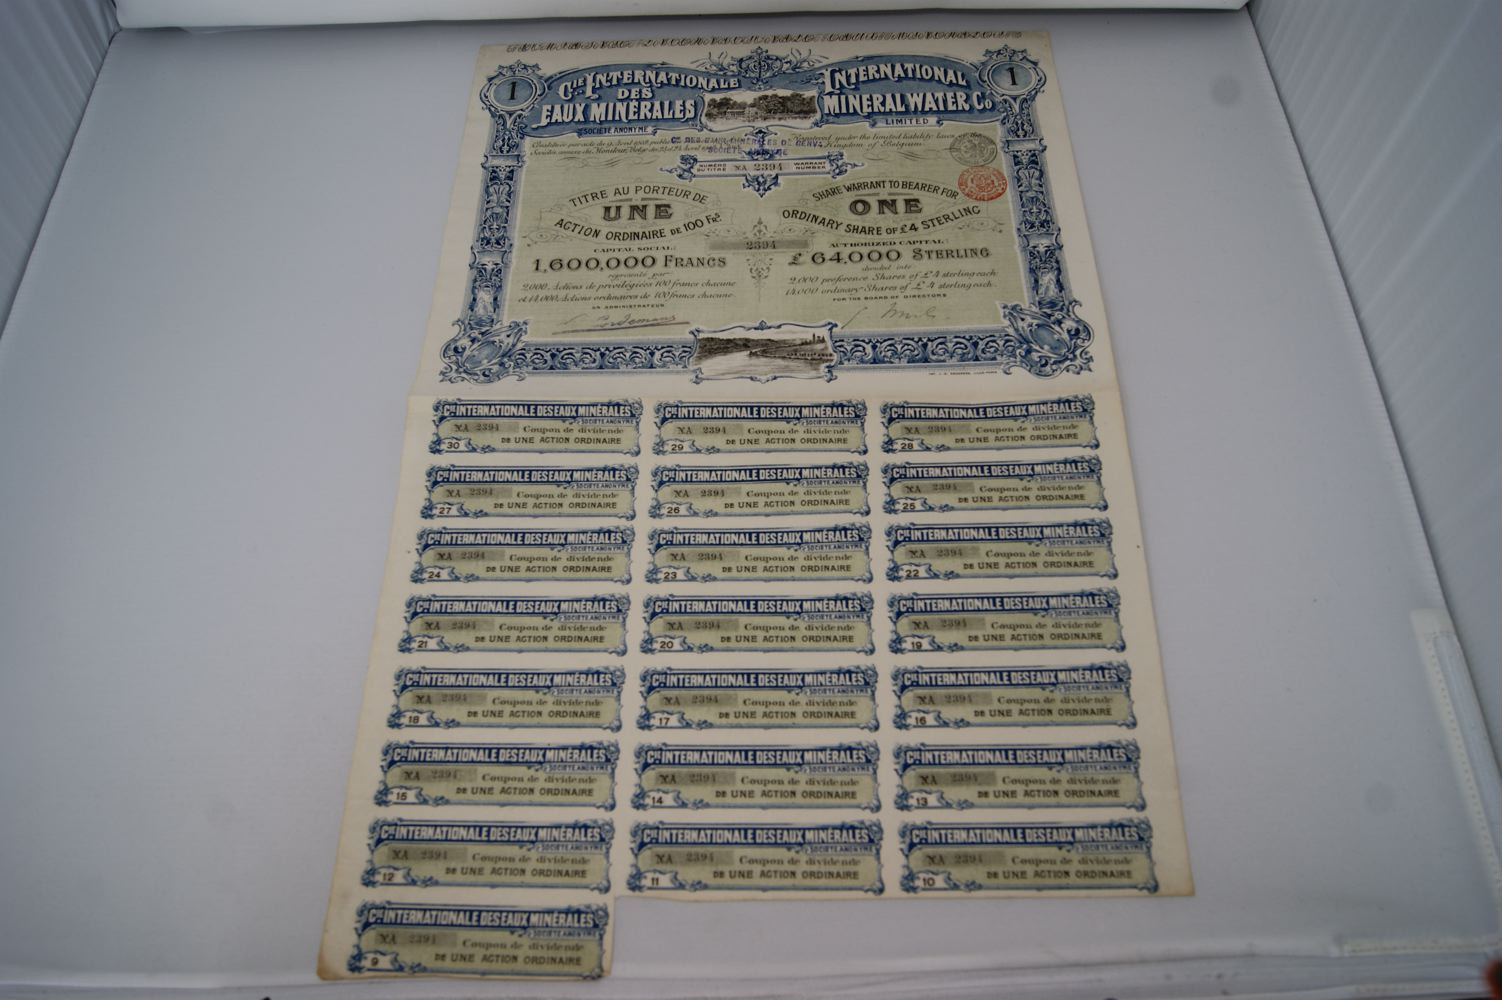 1
Cie INTERNATIONALE
DES
EAUX MINÉRALES
SOCIÉTÉ ANONYME
INTERNATIONAL
MINERAL WATER Co
LIMITED
1
Registered under the limited liability laws of the
Kingdom of Belgium
SOCIÉTÉ ANONYME
NUMÉRO DU TITRE NA 2394 WARRANT NUMBER
TITRE AU PORTEUR DE
UNE
ACTION ORDINAIRE DE 100 Frs
CAPITAL SOCIAL:
1,600,000 FRANCS
représenté par
2.000. Actions de privilégiées 100 francs chacune
et 14.000. Actions ordinaires de 100 francs chacune
UN ADMINISTRATEUR
2394
SHARE WARRANT TO BEARER FOR
ONE
ORDINARY SHARE OF £4 STERLING
AUTHORIZED CAPITAL:
£ 64,000 STERLING
divided into
2.000 preference Shares of £4 sterling each.
14.000 ordinary Shares of £4 sterling each.
FOR THE BOARD OF DIRECTORS
Cie INTERNATIONALE DES EAUX MINÉRALES
SOCIÉTÉ ANONYME
NA 2394 Coupon de dividende
30 DE UNE ACTION ORDINAIRE
Cie INTERNATIONALE DES EAUX MINÉRALES
SOCIÉTÉ ANONYME
NA 2394 Coupon de dividende
29 DE UNE ACTION ORDINAIRE
Cie INTERNATIONALE DES EAUX MINÉRALES
SOCIÉTÉ ANONYME
NA 2394 Coupon de dividende
28 DE UNE ACTION ORDINAIRE
Cie INTERNATIONALE DES EAUX MINÉRALES
SOCIÉTÉ ANONYME
NA 2394 Coupon de dividende
27 DE UNE ACTION ORDINAIRE
Cie INTERNATIONALE DES EAUX MINÉRALES
SOCIÉTÉ ANONYME
NA 2394 Coupon de dividende
26 DE UNE ACTION ORDINAIRE
Cie INTERNATIONALE DES EAUX MINÉRALES
SOCIÉTÉ ANONYME
NA 2394 Coupon de dividende
25 DE UNE ACTION ORDINAIRE
Cie INTERNATIONALE DES EAUX MINÉRALES
SOCIÉTÉ ANONYME
NA 2394 Coupon de dividende
24 DE UNE ACTION ORDINAIRE
Cie INTERNATIONALE DES EAUX MINÉRALES
SOCIÉTÉ ANONYME
NA 2394 Coupon de dividende
23 DE UNE ACTION ORDINAIRE
Cie INTERNATIONALE DES EAUX MINÉRALES
SOCIÉTÉ ANONYME
NA 2394 Coupon de dividende
22 DE UNE ACTION ORDINAIRE
Cie INTERNATIONALE DES EAUX MINÉRALES
SOCIÉTÉ ANONYME
NA 2394 Coupon de dividende
21 DE UNE ACTION ORDINAIRE
Cie INTERNATIONALE DES EAUX MINÉRALES
SOCIÉTÉ ANONYME
NA 2394 Coupon de dividende
20 DE UNE ACTION ORDINAIRE
Cie INTERNATIONALE DES EAUX MINÉRALES
SOCIÉTÉ ANONYME
NA 2394 Coupon de dividende
19 DE UNE ACTION ORDINAIRE
Cie INTERNATIONALE DES EAUX MINÉRALES
SOCIÉTÉ ANONYME
NA 2394 Coupon de dividende
18 DE UNE ACTION ORDINAIRE
Cie INTERNATIONALE DES EAUX MINÉRALES
SOCIÉTÉ ANONYME
NA 2394 Coupon de dividende
17 DE UNE ACTION ORDINAIRE
Cie INTERNATIONALE DES EAUX MINÉRALES
SOCIÉTÉ ANONYME
NA 2394 Coupon de dividende
16 DE UNE ACTION ORDINAIRE
Cie INTERNATIONALE DES EAUX MINÉRALES
SOCIÉTÉ ANONYME
NA 2394 Coupon de dividende
15 DE UNE ACTION ORDINAIRE
Cie INTERNATIONALE DES EAUX MINÉRALES
SOCIÉTÉ ANONYME
NA 2394 Coupon de dividende
14 DE UNE ACTION ORDINAIRE
Cie INTERNATIONALE DES EAUX MINÉRALES
SOCIÉTÉ ANONYME
NA 2394 Coupon de dividende
13 DE UNE ACTION ORDINAIRE
Cie INTERNATIONALE DES EAUX MINÉRALES
SOCIÉTÉ ANONYME
NA 2394 Coupon de dividende
12 DE UNE ACTION ORDINAIRE
Cie INTERNATIONALE DES EAUX MINÉRALES
SOCIÉTÉ ANONYME
NA 2394 Coupon de dividende
11 DE UNE ACTION ORDINAIRE
Cie INTERNATIONALE DES EAUX MINÉRALES
SOCIÉTÉ ANONYME
NA 2394 Coupon de dividende
10 DE UNE ACTION ORDINAIRE
Cie INTERNATIONALE DES EAUX MINÉRALES
SOCIÉTÉ ANONYME
NA 2394 Coupon de dividende
9 DE UNE ACTION ORDINAIRE